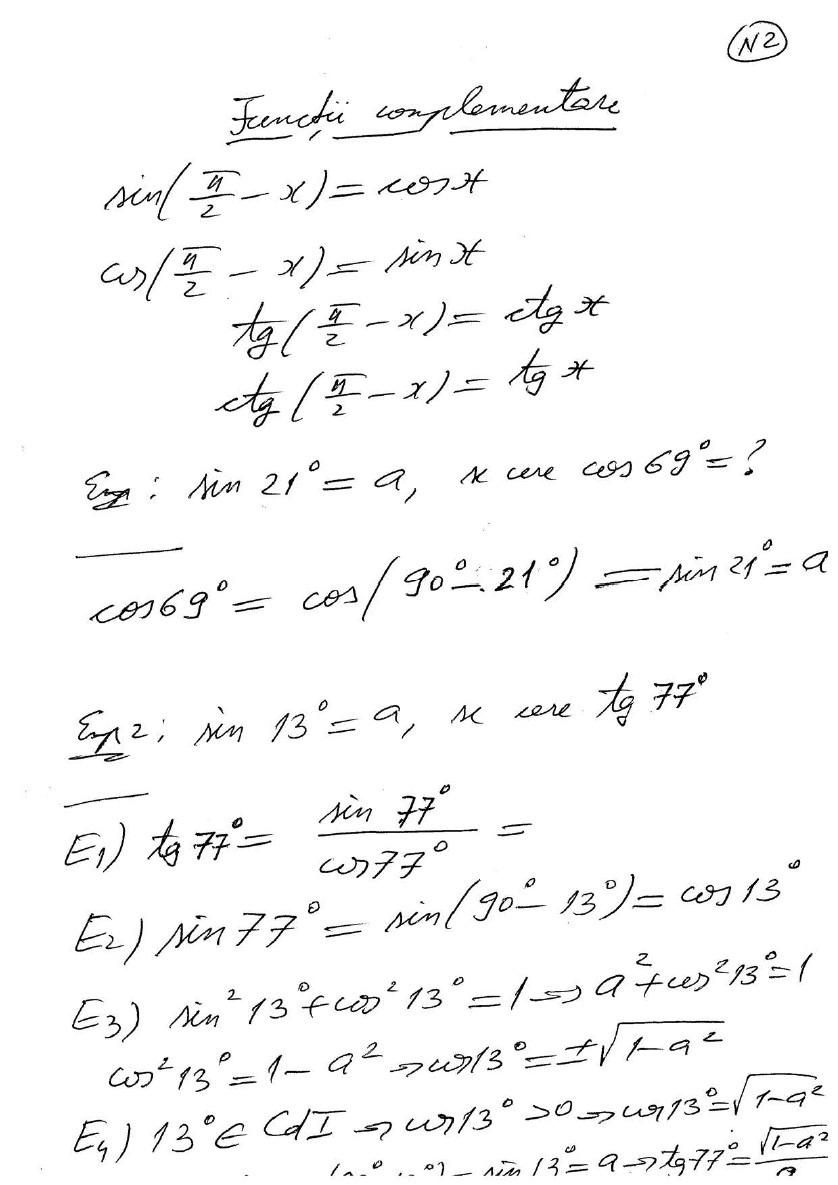 N2
Funcții complementare
sin(π/2 - x) = cos x
cos(π/2 - x) = sin x
tg(π/2 - x) = ctg x
ctg(π/2 - x) = tg x
Exp: sin 21° = a, se cere cos 69° = ?
cos 69° = cos(90° - 21°) = sin 21° = a
Exp 2: sin 13° = a, se cere tg 77°
E1) tg 77° = sin 77° / cos 77° =
E2) sin 77° = sin(90° - 13°) = cos 13°
E3) sin² 13° + cos² 13° = 1 => a² + cos² 13° = 1
cos² 13° = 1 - a² => cos 13° = ±√(1 - a²)
E4) 13° ∈ CdI => cos 13° > 0 => cos 13° = √(1 - a²)
= sin 13° = a => tg 77° = √(1 - a²) /